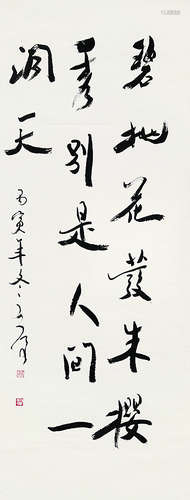 碧桃花发朱樱
秀别是人间一
洞天
丙寅年冬